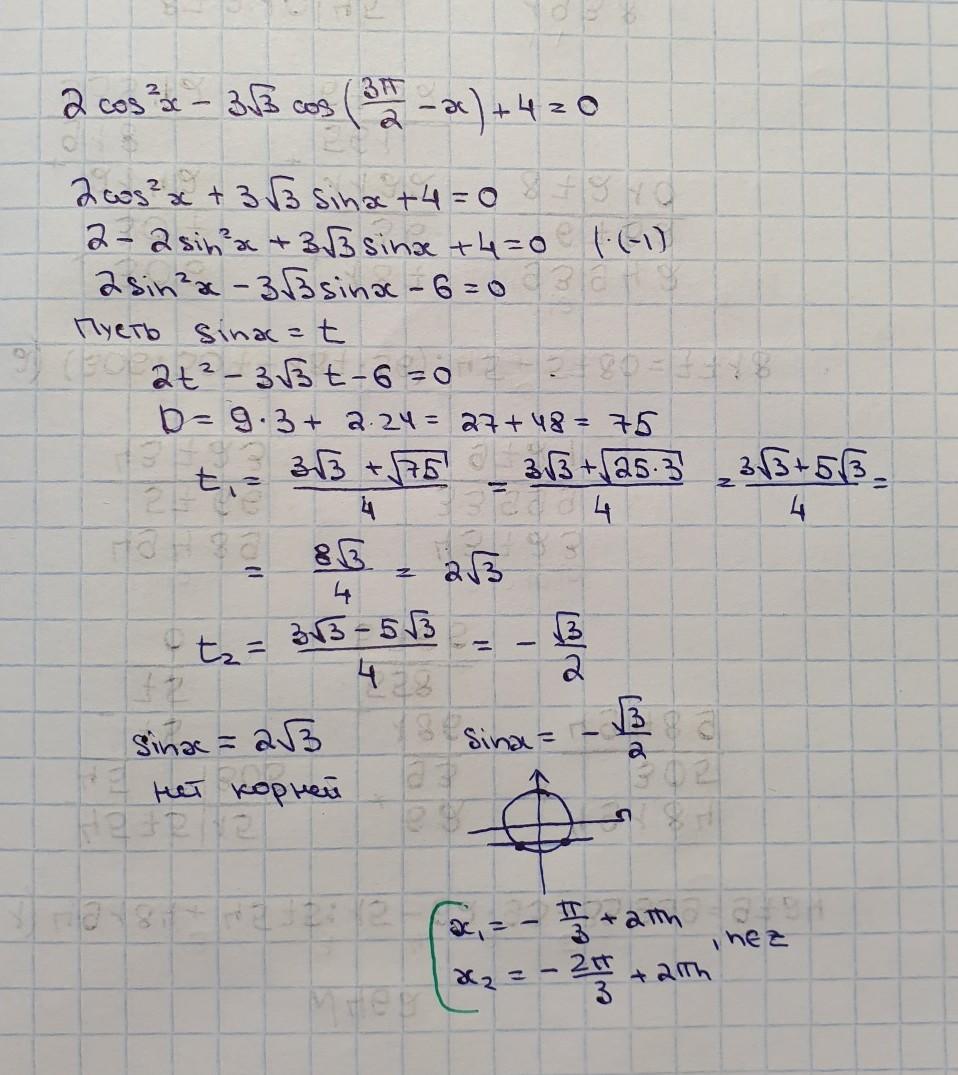 2 cos²x - 3√3 cos(3π/2 - x) + 4 = 0
2cos²x + 3√3 sinx + 4 = 0
2 - 2sin²x + 3√3 sinx + 4 = 0 |·(-1)
2sin²x - 3√3 sinx - 6 = 0
Пусть sinx = t
2t² - 3√3 t - 6 = 0
D = 9·3 + 2·24 = 27 + 48 = 75
t₁ = (3√3 + √75)/4 = (3√3 + √(25·3))/4 = (3√3 + 5√3)/4 =
= 8√3/4 = 2√3
t₂ = (3√3 - 5√3)/4 = - √3/2
sinx = 2√3 sinx = - √3/2
нет корней
x₁ = - π/3 + 2πn
, n∈z
x₂ = - 2π/3 + 2πn